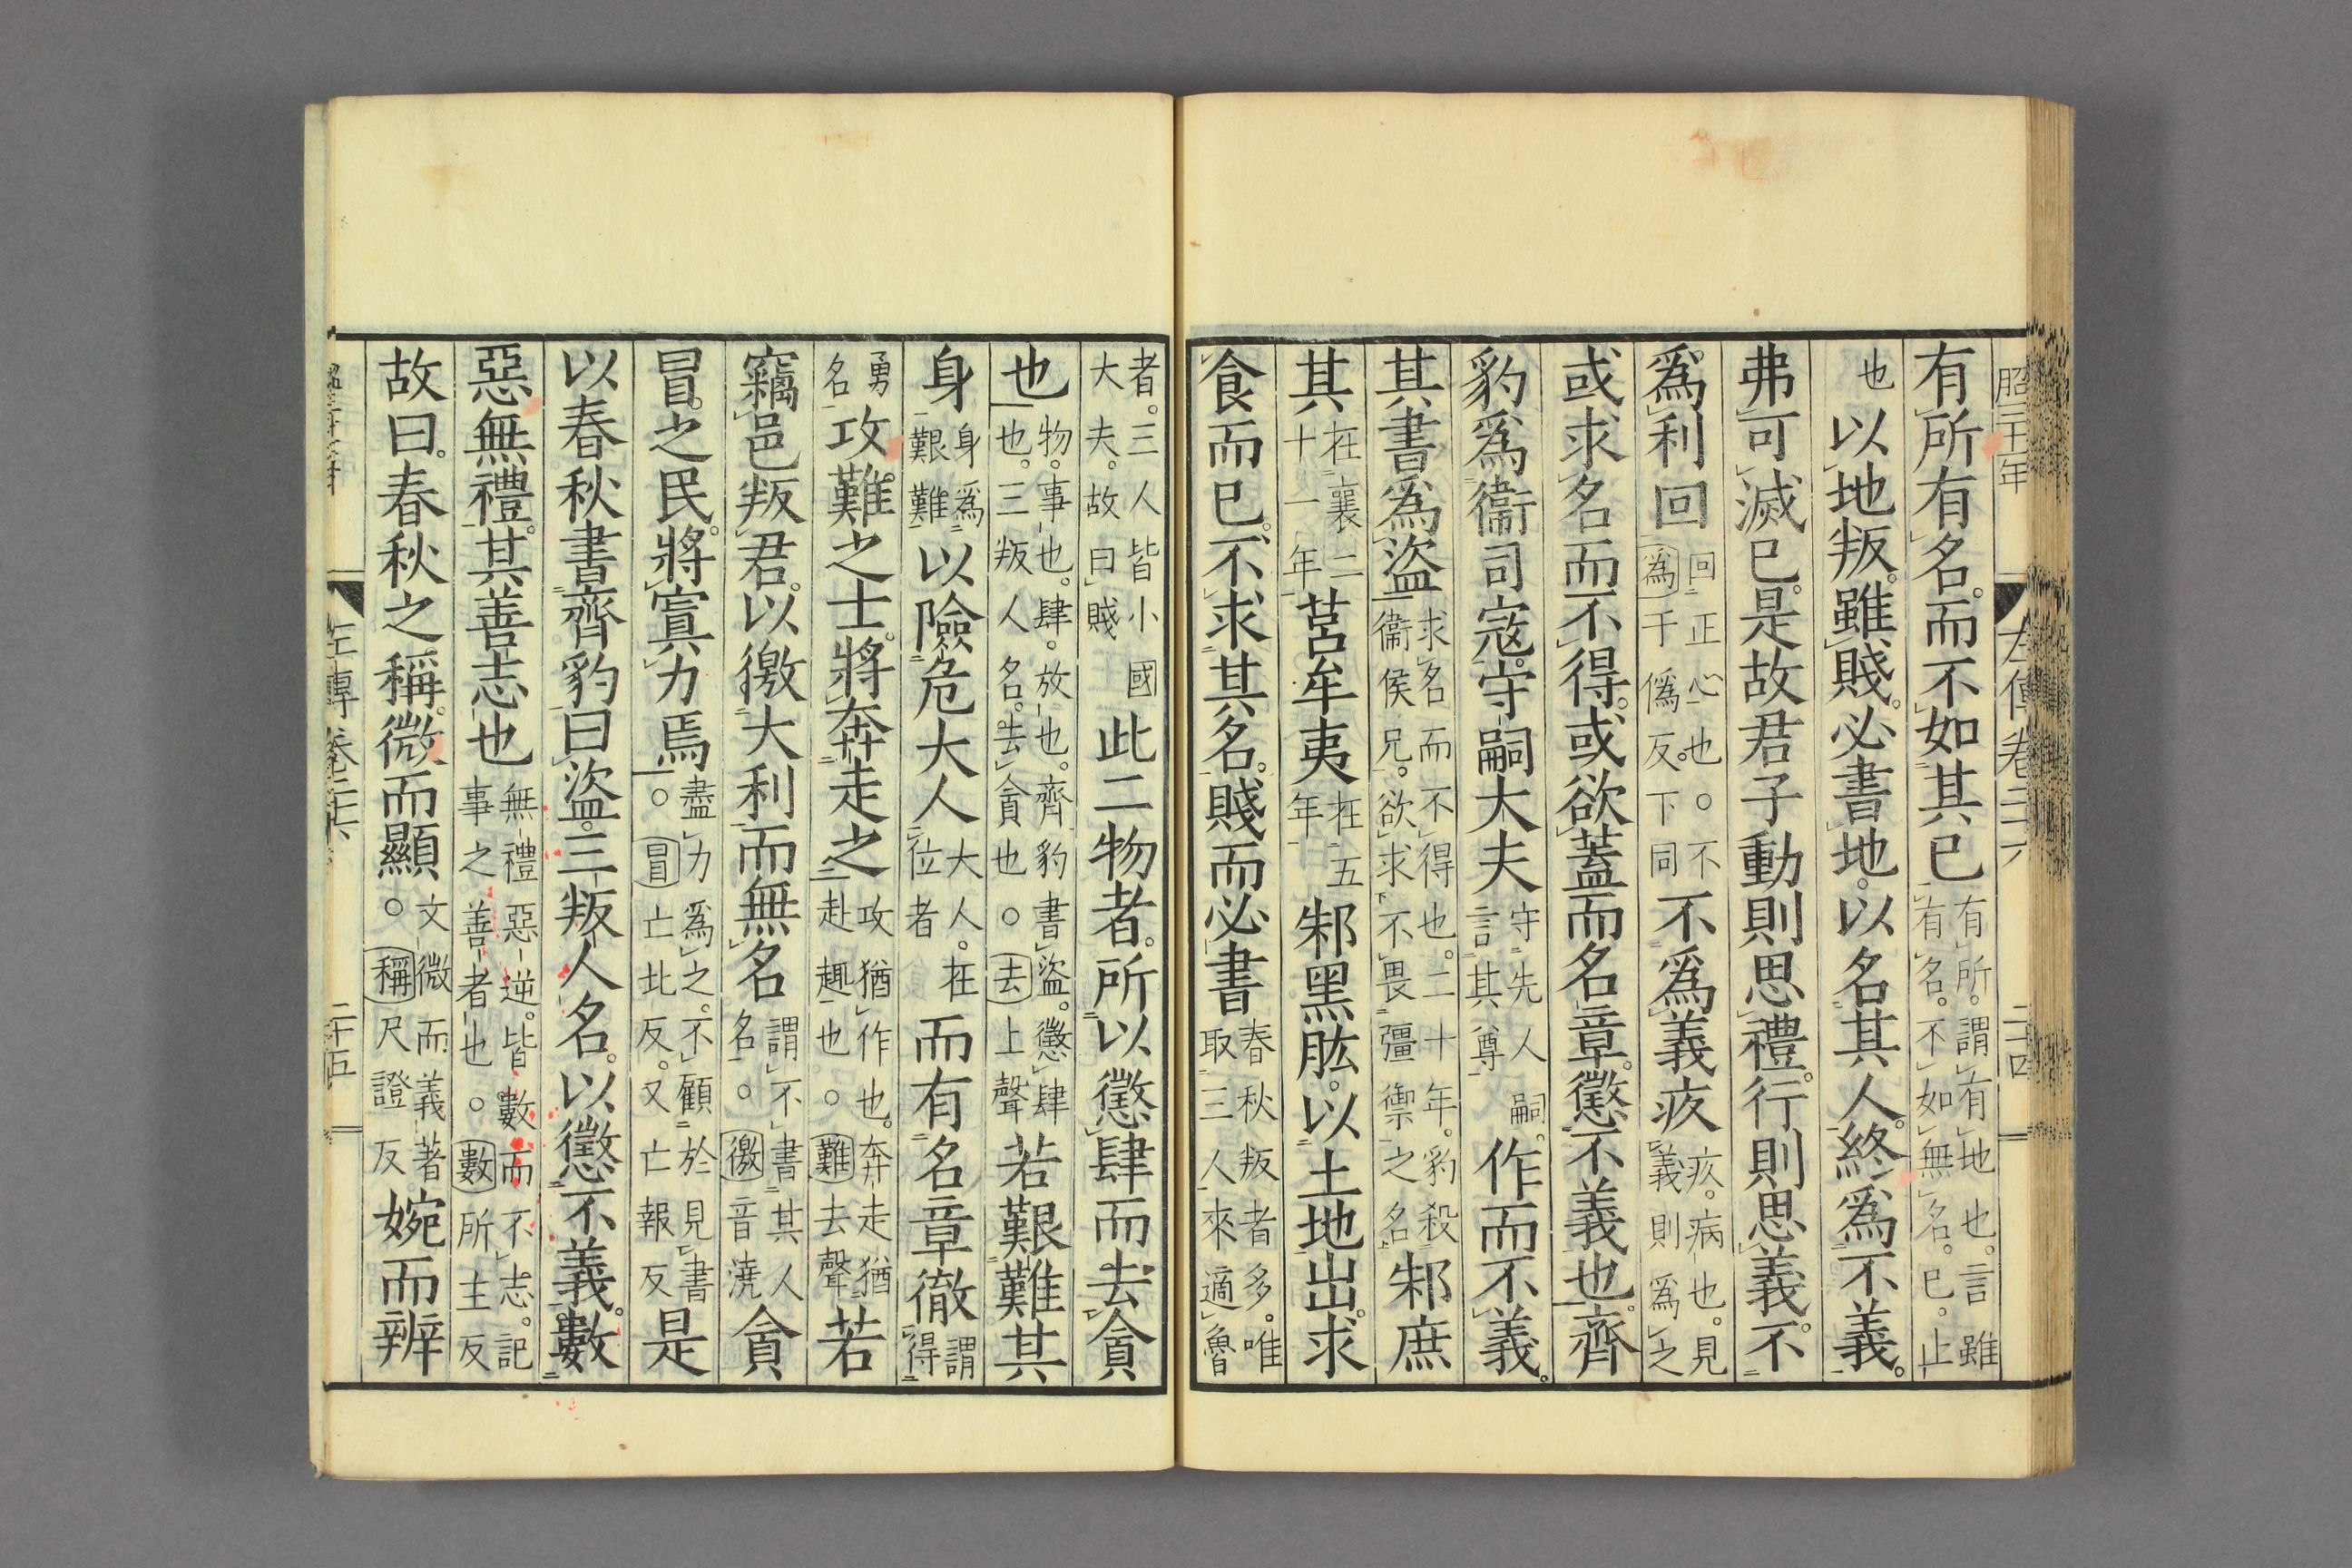 昭三十一年
左傳卷二十六
二十四
有所有名而不如其已有所。謂有地也。言雖有名。不如無名。已。止
也以地叛。雖賤。必書地。以名其人。終爲不義。
弗可滅已。是故君子動則思禮。行則思義。不
爲利回回正心也。○不爲于僞反。下同不爲義疚疚。病也。見義則爲之
或求名而不得。或欲蓋而名章。懲不義也。齊
豹爲衞司寇。守嗣大夫守先人嗣。言其尊作而不義。
其書爲盜求名而不得也。二十年。豹殺衞侯兄。欲求不畏彊禦之名邾庶
其在襄二十一年莒牟夷在五年邾黑肱。以土地出。求
食而已。不求其名。賤而必書春秋叛者多。唯取三人來適魯
者。三人皆小國大夫。故曰賤此二物者。所以懲肆而去貪
也物。事也。肆。放也。齊豹書盜。懲肆也。三叛人名。去貪也○去上聲若艱難其
身身爲艱難以險危大人大人。在位者而有名章徹謂得
勇名攻難之士。將奔走之攻猶作也。奔走猶赴趣也。○難去聲若
竊邑叛君。以徼大利而無名謂不書其人名。○徼音澆貪
冒之民。將寘力焉盡力爲之。不顧於見書○冒亡北反。又亡報反是
以春秋書齊豹曰盜。三叛人名。以懲不義。數
惡無禮。其善志也無禮惡逆。皆數而不志。記事之善者也。○數所主反
故曰。春秋之稱。微而顯文微而義著○稱尺證反婉而辨
左傳卷二十六
二十五